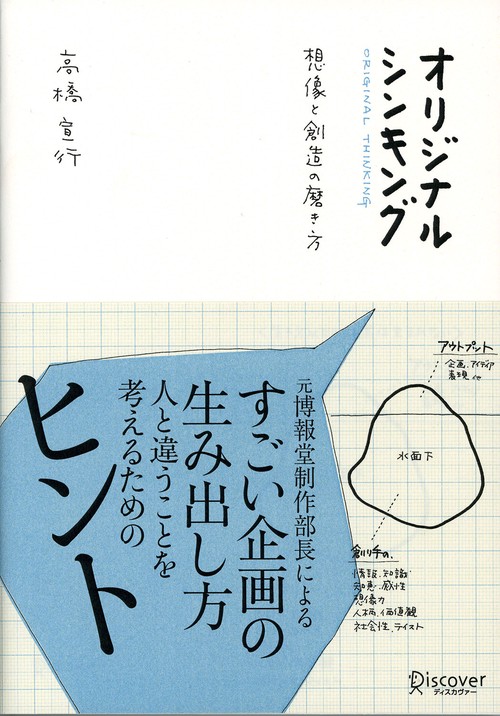 オリジナル
シンキング
ORIGINAL THINKING
想像と創造の磨き方
高橋宣行
元博報堂制作部長による
すごい企画の
生み出し方
人と違うことを
考えるための
ヒント
アウトプット
企画、アイディア
表現 他
水面下
創り手の、
情報、知識
知恵、感性
想像力
人柄、価値観
社会性、テイスト
Discover
ディスカヴァー